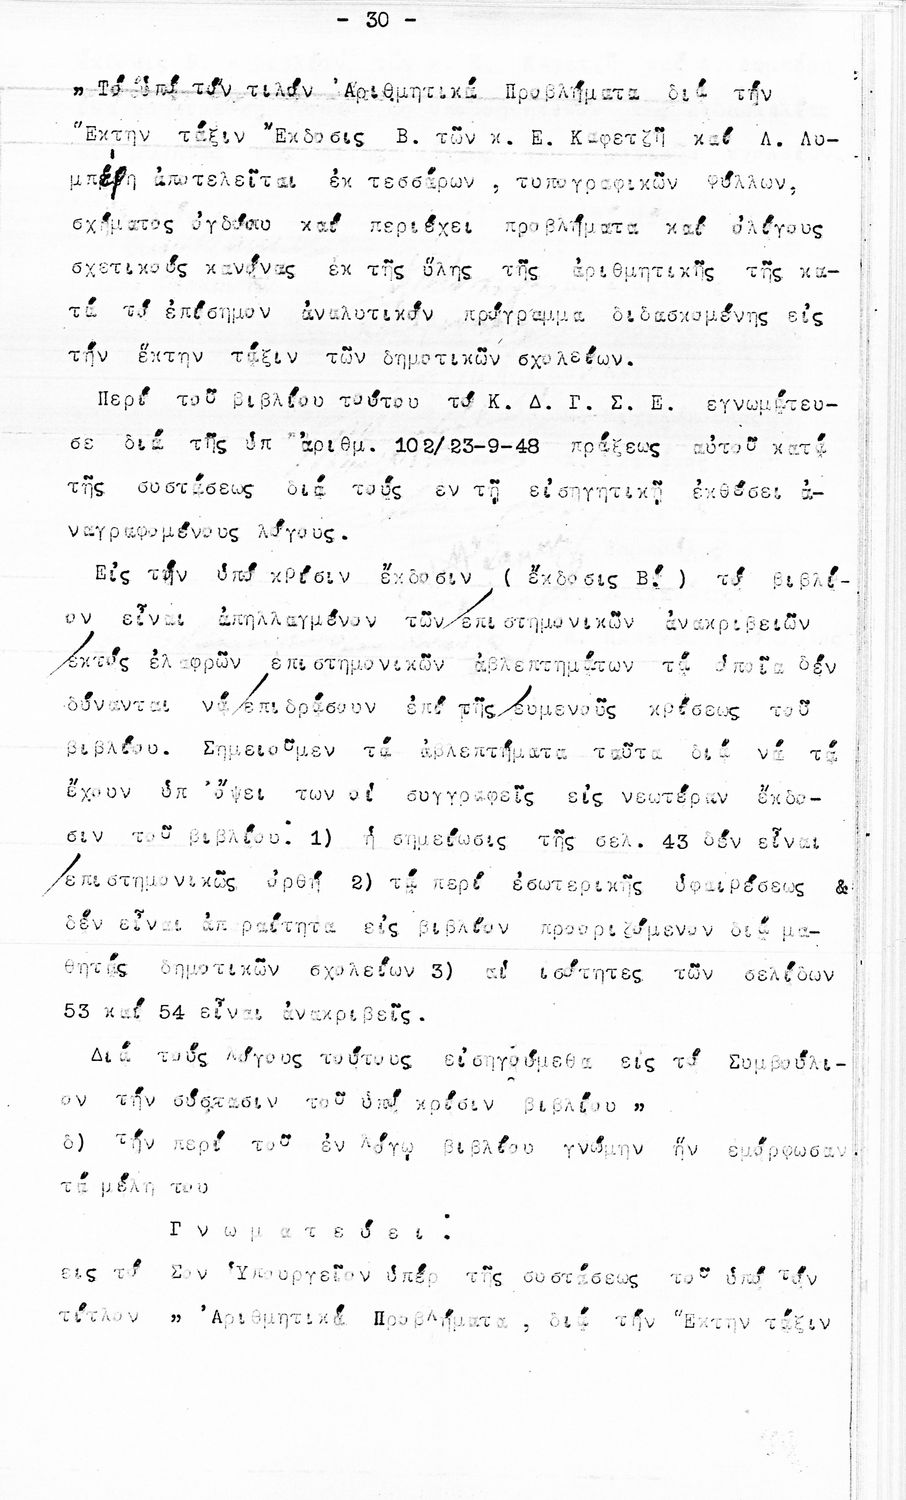 - 30 -
„ Τό ὑπό τόν τιλον Ἀριθμητικά Προβλήματα διά τήν
Ἕκτην τάξιν Ἔκδοσις Β. τῶν κ. Ε. Καφετζῆ καί Λ. Λυ-
μπέρη ἀποτελεῖται ἐκ τεσσάρων , τυπογραφικῶν φύλλων,
σχήματος ὀγδόου καί περιέχει προβλήματα καί ὀλίγους
σχετικούς κανόνας ἐκ τῆς ὕλης τῆς ἀριθμητικῆς τῆς κα-
τά τό ἐπίσημον ἀναλυτικόν πρόγραμμα διδασκομένης εἰς
τήν ἕκτην τάξιν τῶν δημοτικῶν σχολείων.
Περί τοῦ βιβλίου τούτου τό Κ. Δ. Γ. Σ. Ε. εγνωμάτευ-
σε διά τῆς ὑπ ἀριθμ. 102/23-9-48 πράξεως αὐτοῦ κατά
τῆς συστάσεως διά τούς εν τῇ εἰσηγητικῇ ἐκθέσει ἀ-
ναγραφομένους λόγους.
Εἰς τήν ὑπό κρίσιν ἔκδοσιν ( ἔκδοσις Β΄ ) τό βιβλί-
ον εἶναι ἀπηλλαγμένον τῶν επιστημονικῶν ἀνακριβειῶν
εκτός ἐλαφρῶν επιστημονικῶν ἀβλεπτημάτων τά ὁποῖα δέν
δύνανται νά επιδράσουν ἐπί τῆς ευμενοῦς κρίσεως τοῦ
βιβλίου. Σημειοῦμεν τά ἀβλεπτήματα ταῦτα διά νά τά
ἔχουν ὑπ ὄψει των οἱ συγγραφεῖς εἰς νεωτέραν ἔκδο-
σιν τοῦ βιβλίου: 1) ἡ σημείωσις τῆς σελ. 43 δέν εἶναι
επιστημονικῶς ὀρθή 2) τά περί ἐσωτερικῆς ὑφαιρέσεως &
δέν εἶναι ἀπαραίτητα εἰς βιβλίον προοριζόμενον διά μα-
θητάς δημοτικῶν σχολείων 3) αἱ ισότητες τῶν σελίδων
53 καί 54 εἶναι ἀνακριβεῖς.
Διά τούς λόγους τούτους εἰσηγούμεθα εις τό Συμβούλι-
ον τήν σύστασιν τοῦ ὑπό κρίσιν βιβλίου „
δ) τήν περί τοῦ ἐν λόγῳ βιβλίου γνώμην ἥν εμόρφωσαν
τά μέλη του
Γ ν ω μ α τ ε ύ ε ι :
εις τό Σον Ὑπουργεῖον ὑπέρ τῆς συστάσεως τοῦ ὑπό τόν
τίτλον „ Ἀριθμητικά Προβλήματα , διά τήν Ἕκτην τάξιν